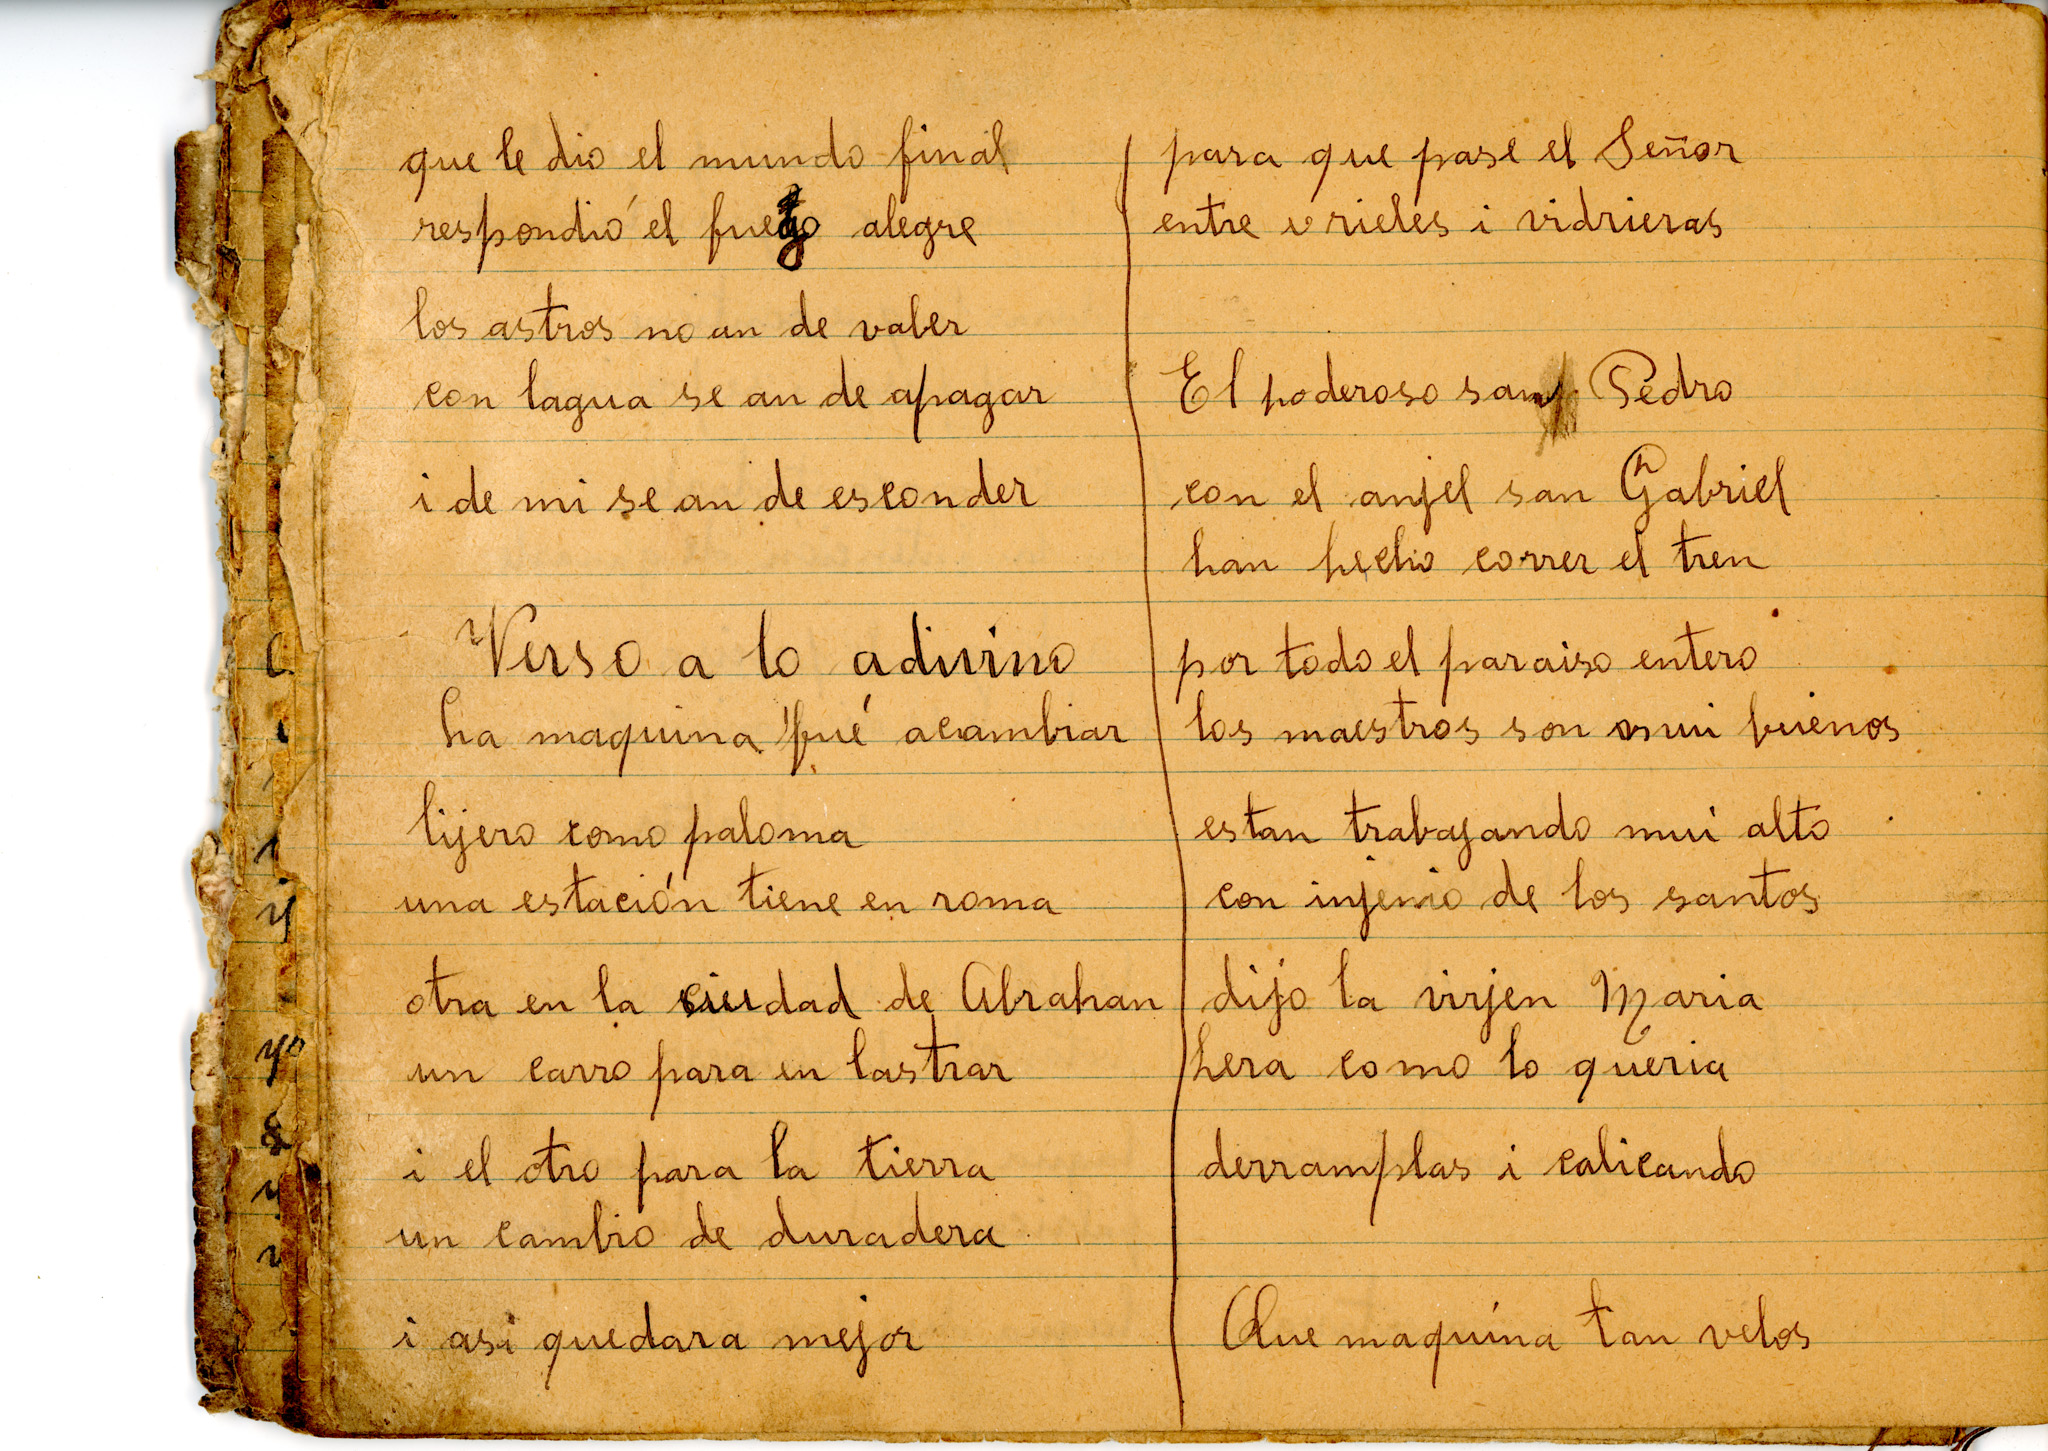 que le dio el mundo final
respondió el fuego alegre
los astros no an de valer
con lagua se an de apagar
i de mi se an de esconder
Verso a lo adivino
La maquina fué acambiar
lijero como paloma
una estación tiene en roma
otra en la ciudad de Abrahan
un carro para en lastrar
i el otro para la tierra
un cambio de duradera
i asi quedara mejor
para que pase el Señor
entre rieles i vidrieras
El poderoso san Pedro
con el anjel san Gabriel
han hecho correr el tren
por todo el paraiso entero
los maestros son mui buenos
estan trabajando mui alto
con injenio de los santos
dijo la virjen Maria
hera como lo queria
derramplas i calicando
Que maquina tan velos